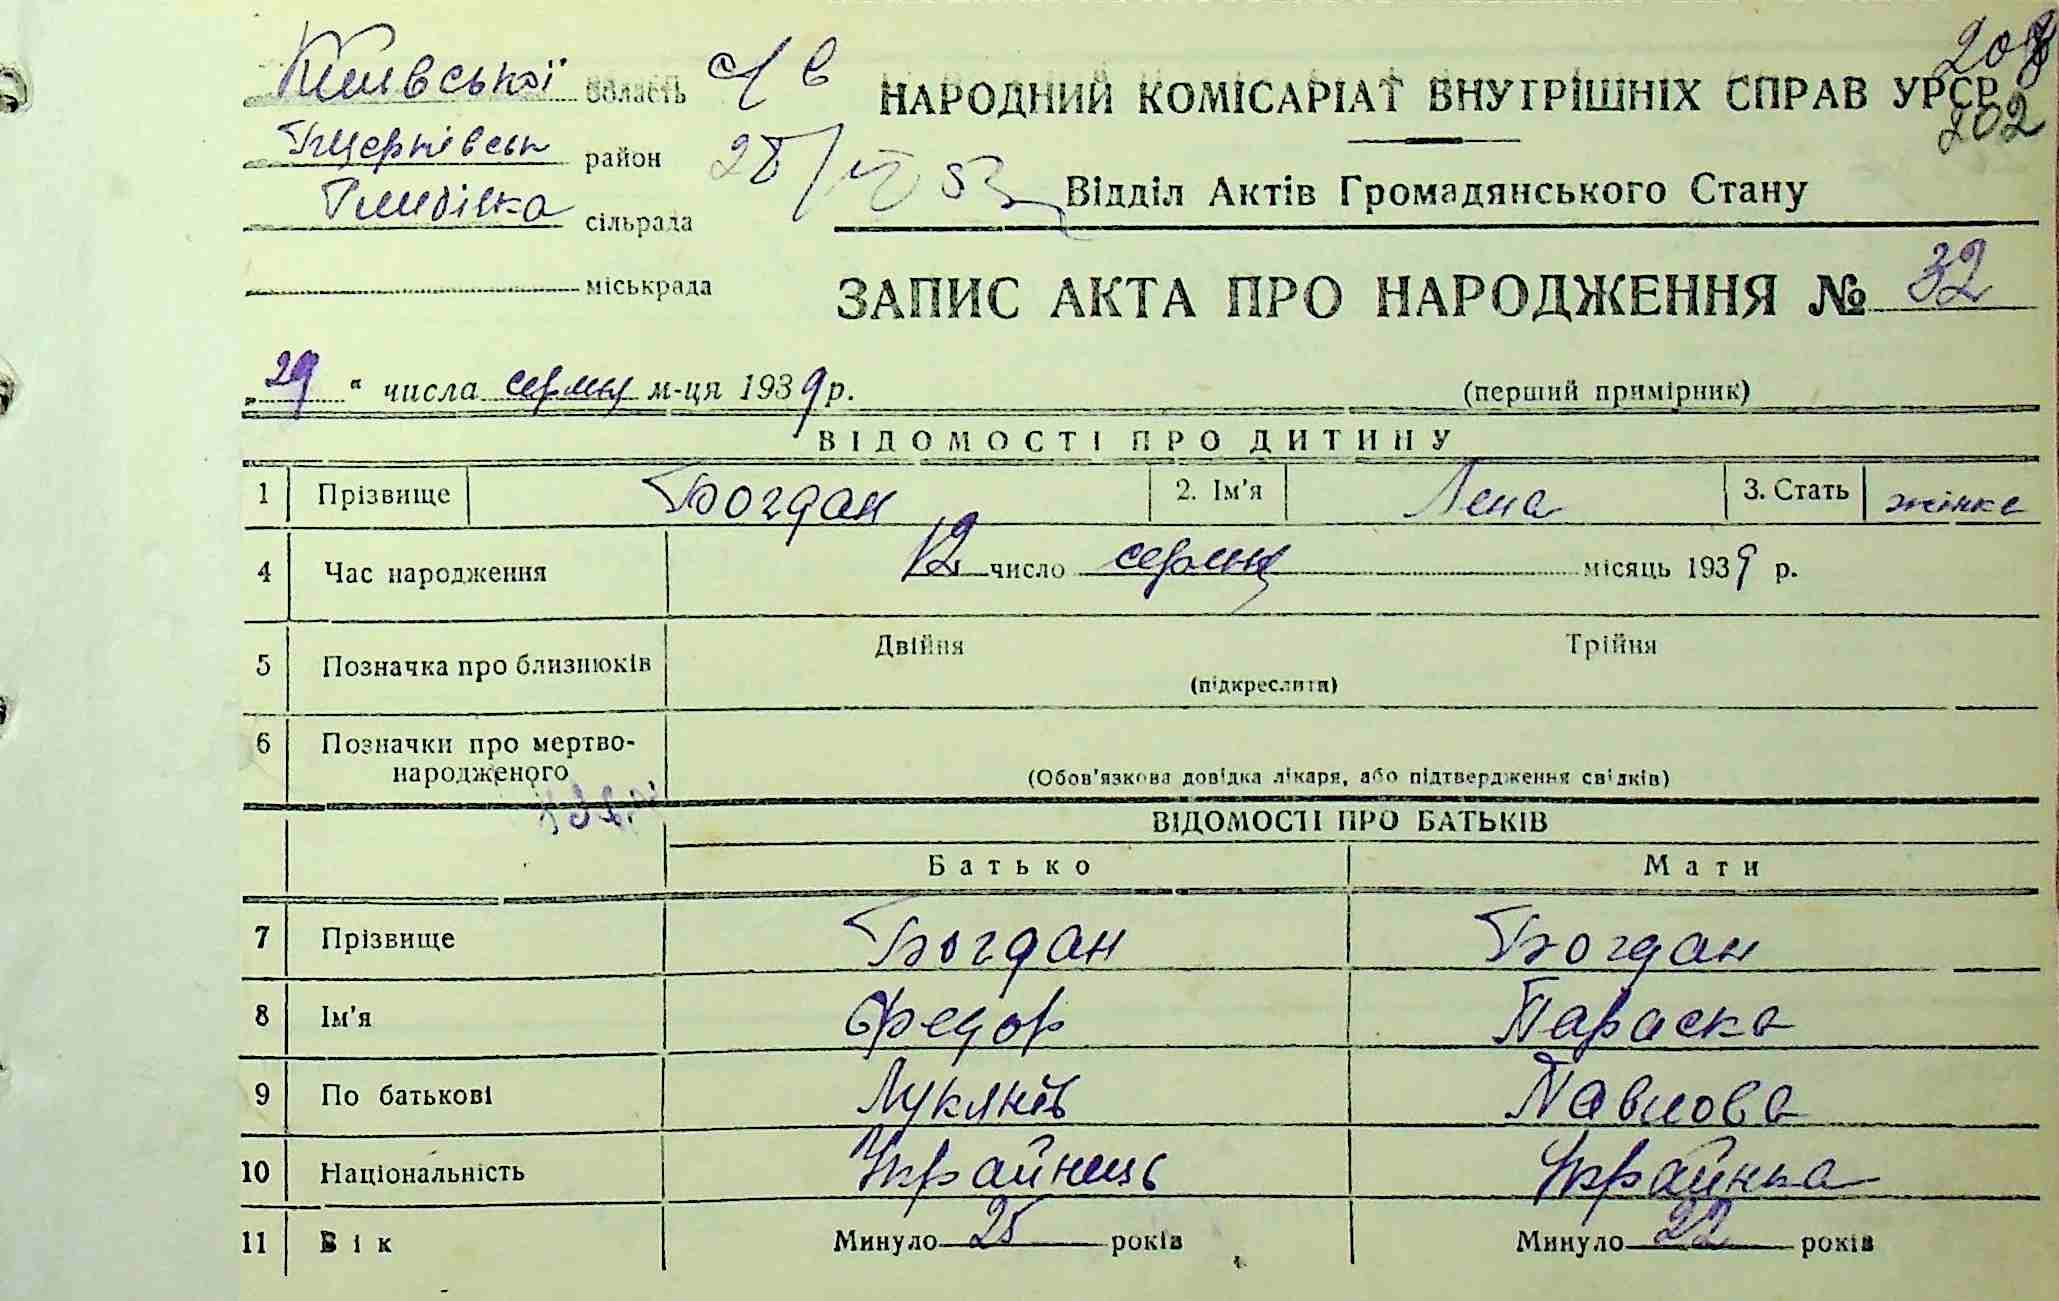 Київської область
НАРОДНИЙ КОМІСАРІАТ ВНУТРІШНІХ СПРАВ УРСР
202
Бцерківськ район
28/VII 53
Відділ Актів Громадянського Стану
сільрада
міськрада
ЗАПИС АКТА ПРО НАРОДЖЕННЯ № 32
„29“ числа серпня м-ця 1939 р.
(перший примірник)
ВІДОМОСТІ ПРО ДИТИНУ
1 Прізвище Богдан 2. Ім'я Лена 3. Стать жінке
4 Час народження 12 число серпня місяць 1939 р.
5 Позначка про близнюків Двійня Трійня
(підкреслити)
6 Позначки про мертво-
народженого
(Обов'язкова довідка лікаря, або підтвердження свідків)
ВІДОМОСТІ ПРО БАТЬКІВ
Батько Мати
7 Прізвище Богдан Богдан
8 Ім'я Федор Параска
9 По батькові Лукянів Павлова
10 Національність Українець Українка
11 Вік Минуло 25 років Минуло 22 років